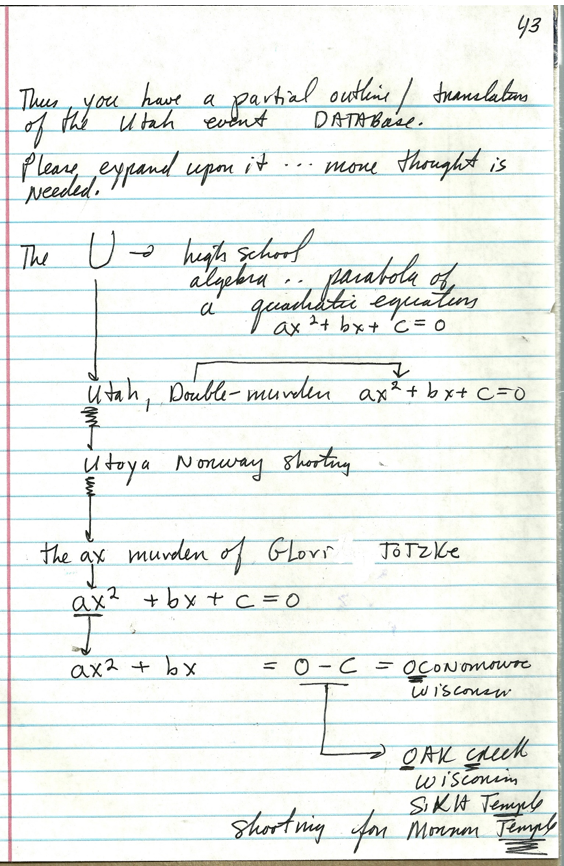 43
Thus you have a partial outline / translation
of the Utah event DATABase.
Please expand upon it ... more thought is
needed.
The U → high school
algebra .. parabola of
a quadratic equation
ax² + bx + c = 0
Utah, Double-murder ax² + bx + c = 0
Utoya Norway shooting
the ax murder of GLori ToTzke
ax² + bx + c = 0
ax² + bx = O - C = OCONOMOWOC
Wisconsin
OAK CReek
Wisconsin
SIKH Temple
shooting for Mormon Temple